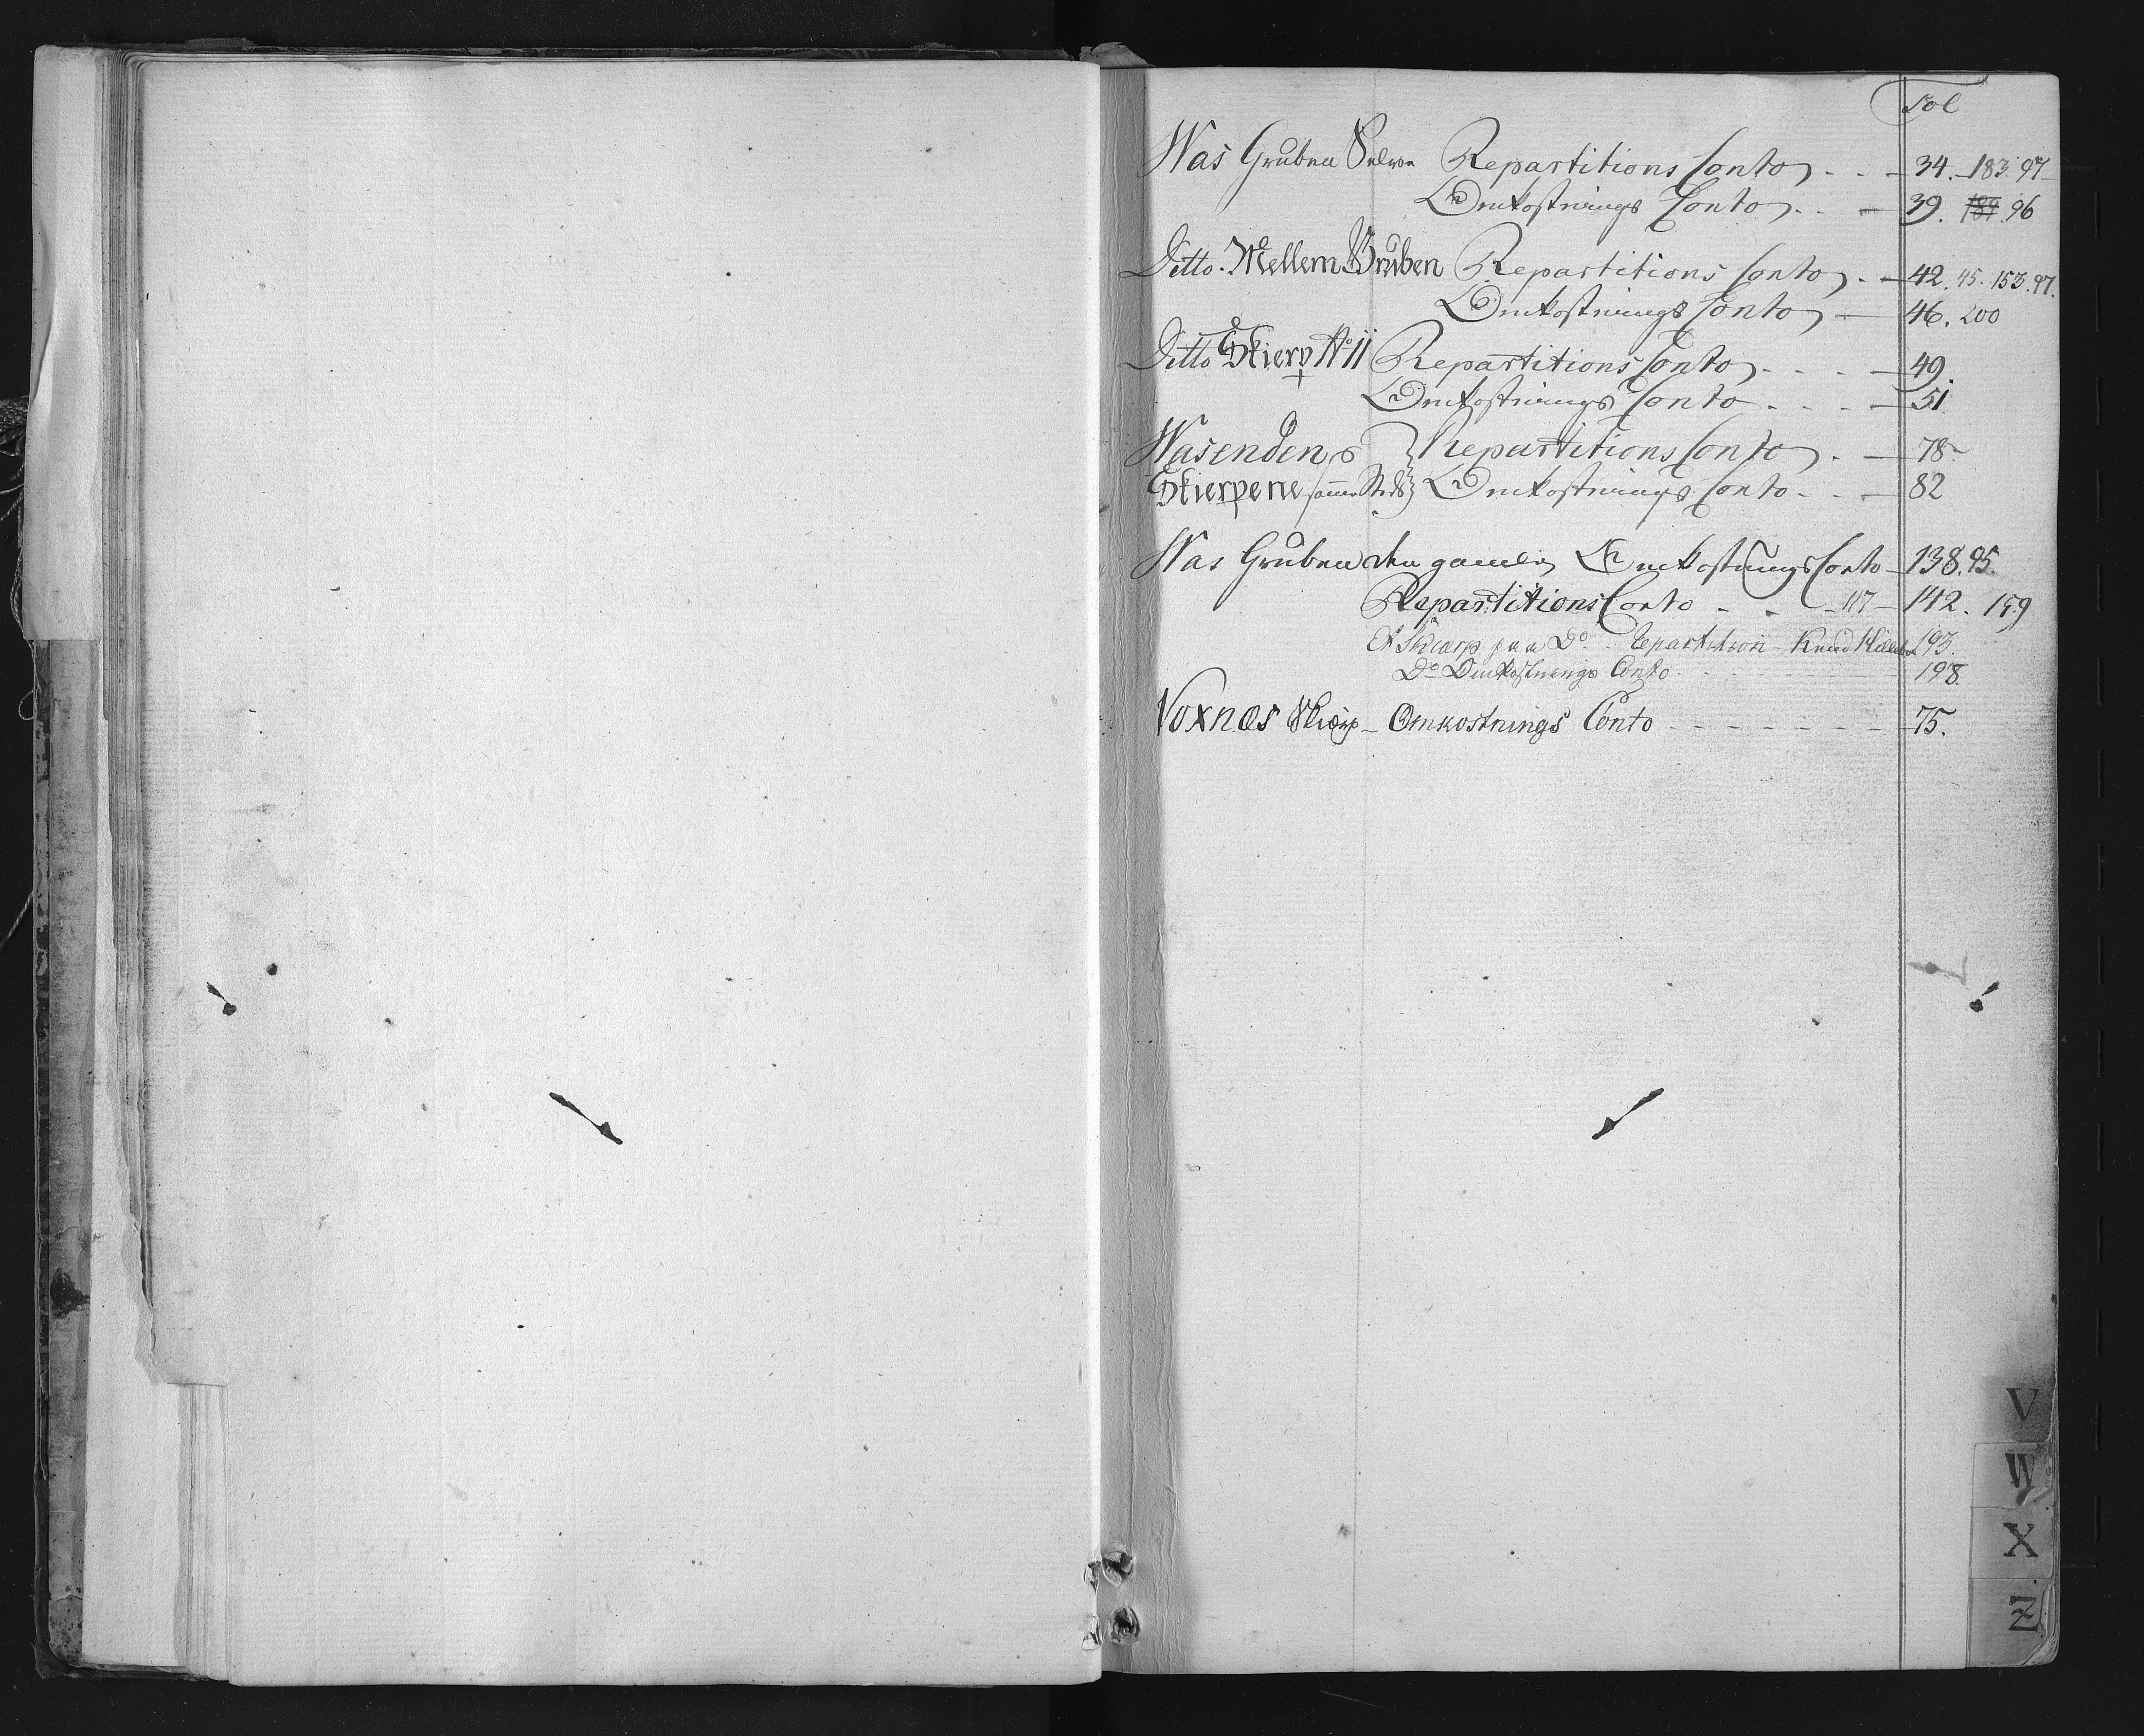 Fol
Was Gruben Selve Repartitions Conto - - - 34. 183. 97
Omkostnings Conto - - - 39. 189. 96
Ditto. Mellem Gruben Repartitions Conto - - 42. 45. 153. 97.
Omkostnings Conto - 46. 200
Ditto Skierp No 11 Repartitions Conto - - - 49.
Omkostnings Conto - - - 51.
Wasenden Repartitions Conto - - 78
Skierpene sammesteds Omkostnings Conto - - - 82
Was Gruben den gamle Omkostnings Conto - 138. 95.
Repartitions Conto - - - 117 - 142. 159
Et Skiærp paa Do. Repartition - Knud 193.
Do Omkostnings Conto - - - 198.
Voxnæs Skiærp - Omkostnings Conto - - - - - - 75.
V
W
X
Z